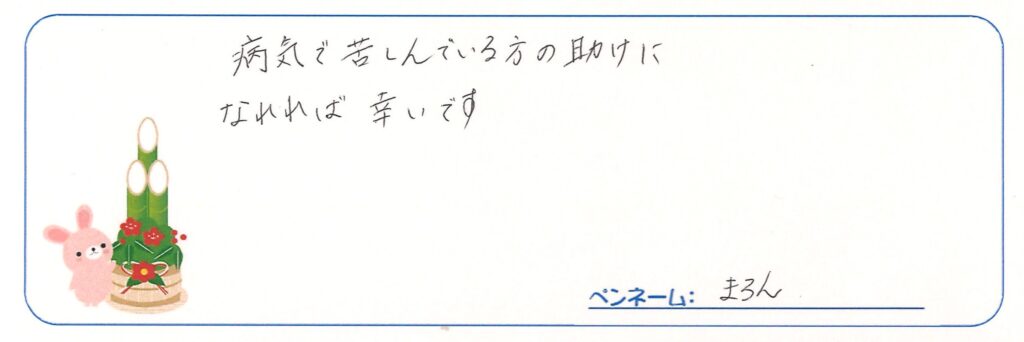 病気で苦しんでいる方の助けに
なれれば 幸いです
ペンネーム: まろん